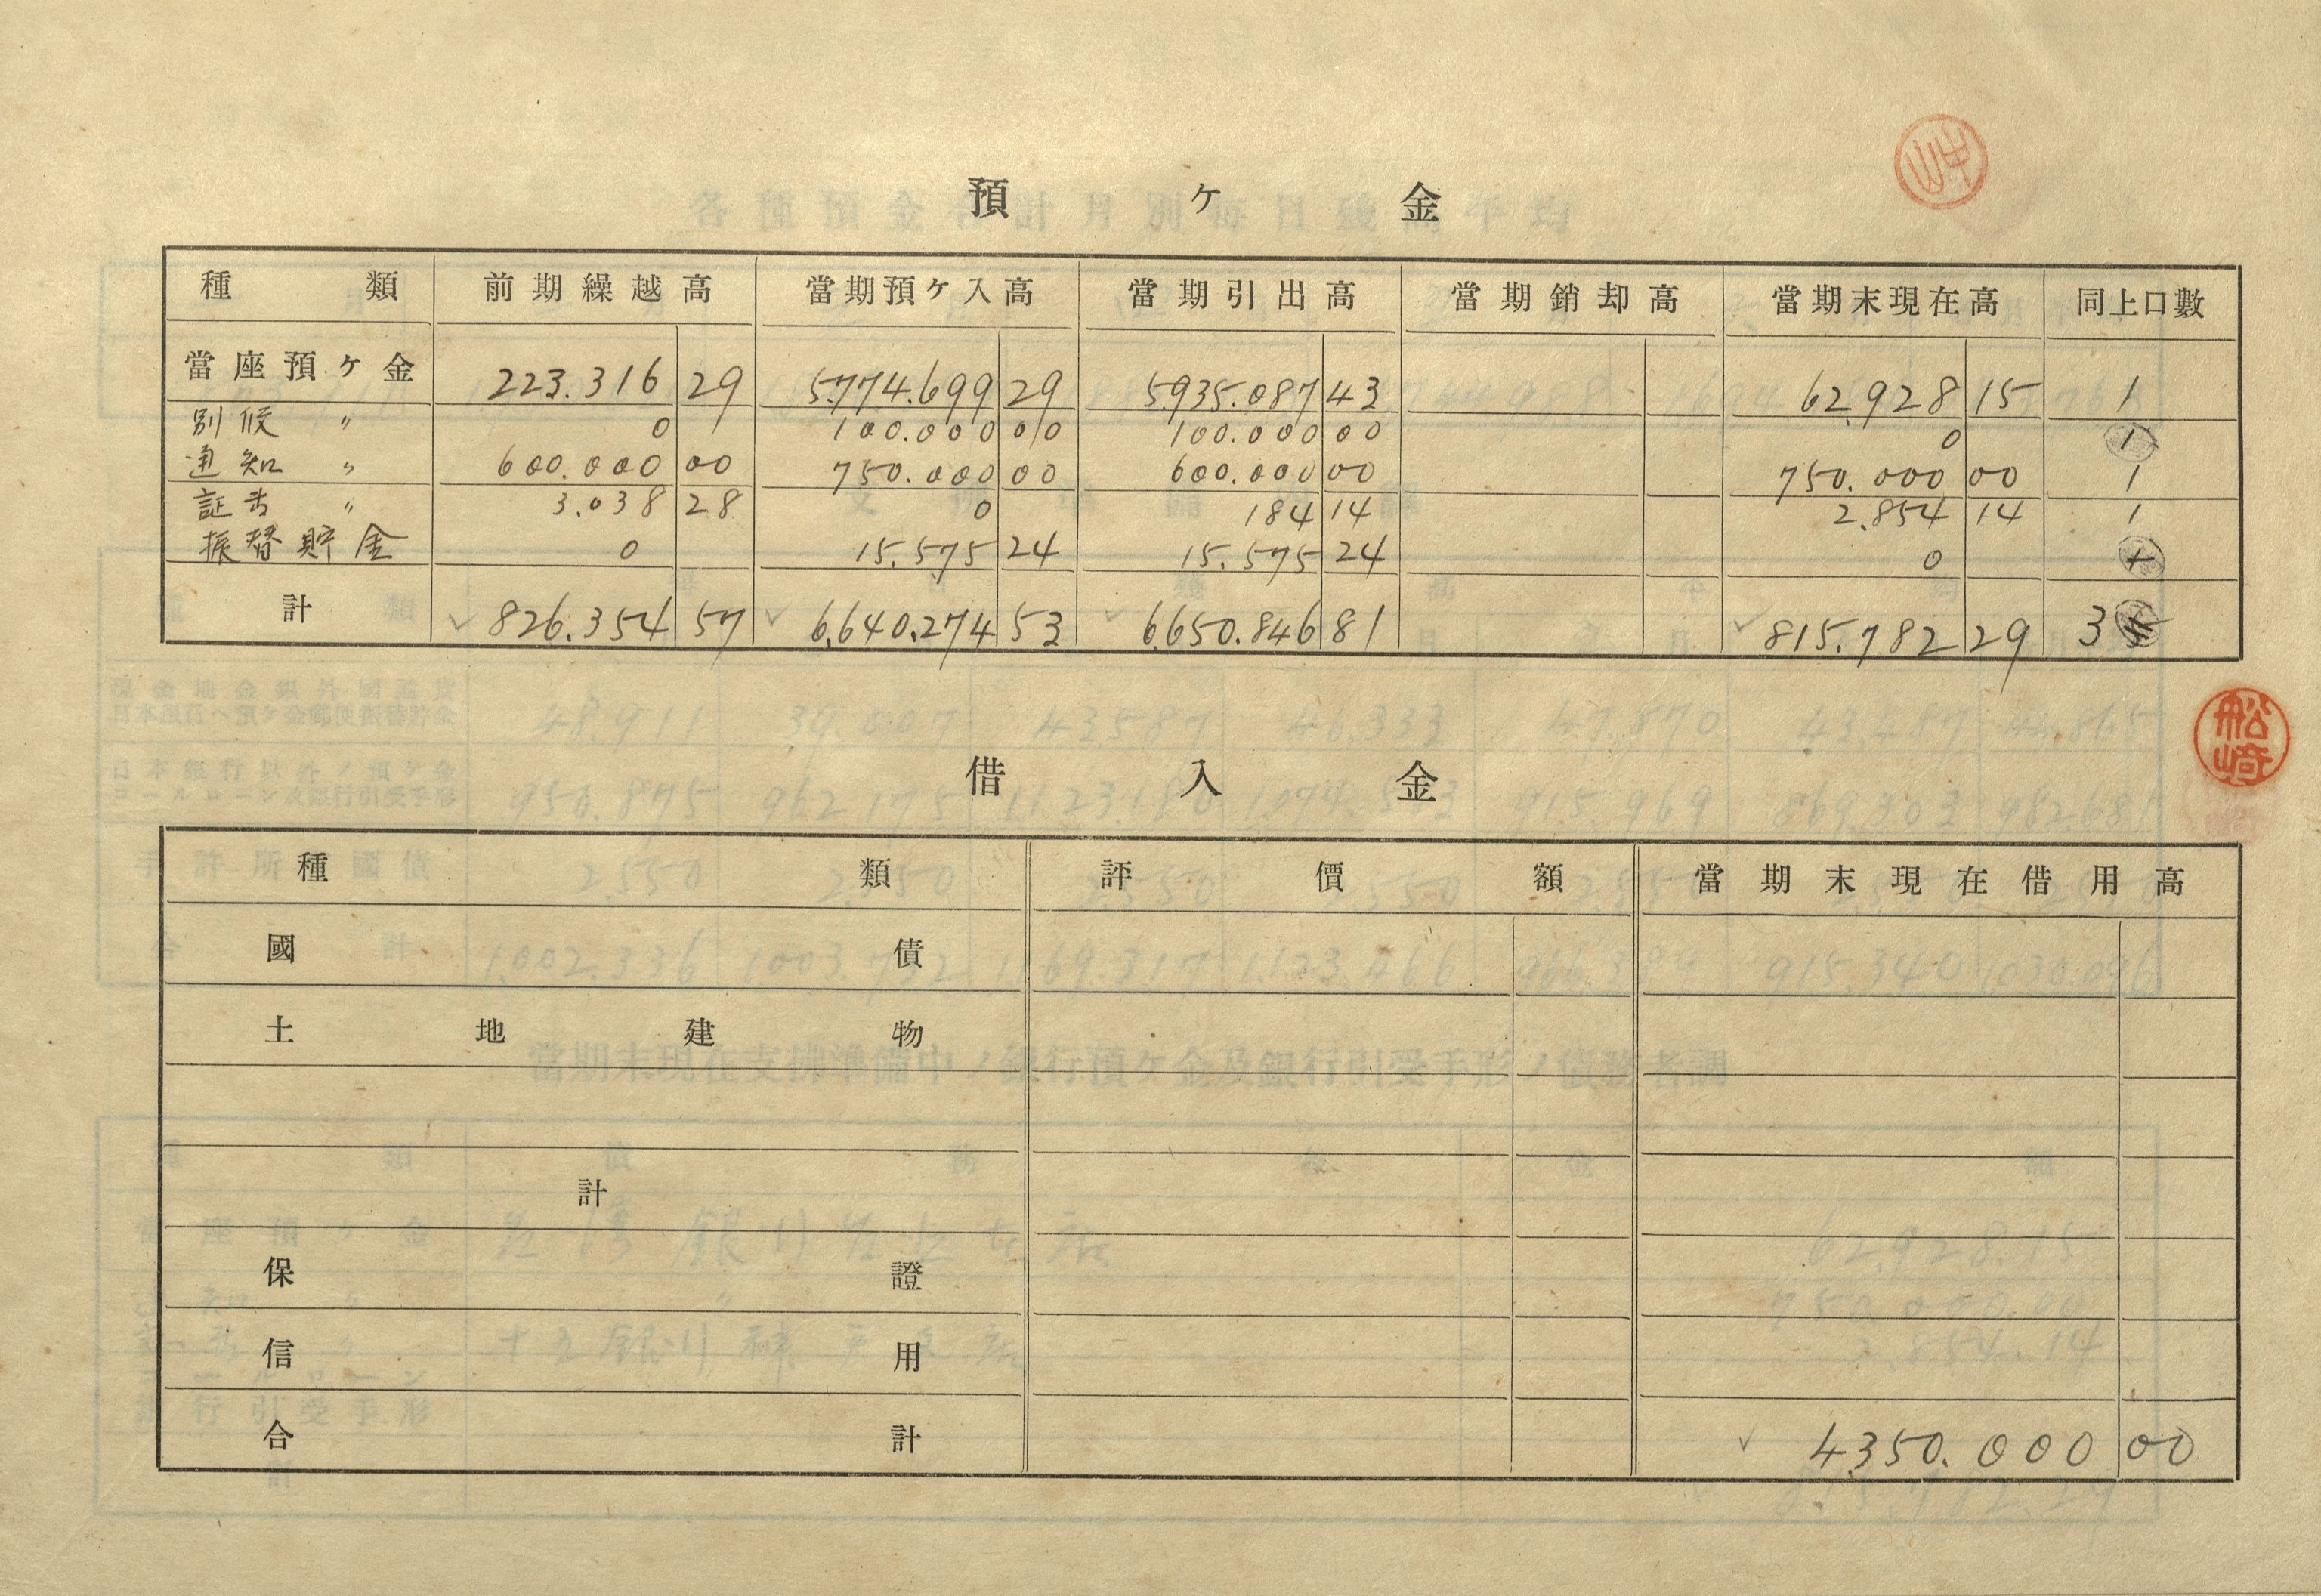 預ケ金
種類 前期繰越高 當期預ケ入高 當期引出高 當期銷却高 當期末現在高 同上口數
當座預ケ金 223.316 29 5.774.699 29 5.935.087 43 62.928 15 1
別候 〃 0 100.000 00 100.000 00 0 1
通知 〃 600.000 00 750.000 00 600.000 00 750.000 00 1
証書 〃 3.038 28 0 184 14 2.854 14 1
振替貯金 0 15.575 24 15.575 24 0 1
計 826.354 57 6.640.274 53 6.650.846 81 815.782 29 3
船崎
借入金
種類 評價額 當期末現在借用高
國債
土地建物
計
保證
信用
合計 4.350.000 00